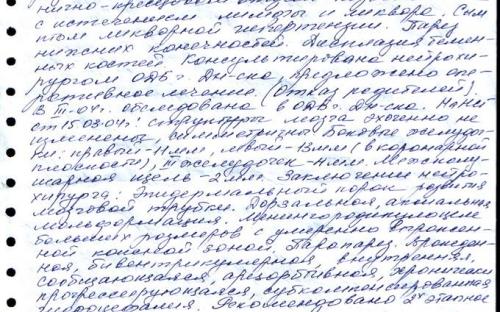 с истечением лимфы и ликвора. Симп
том ликворной гипертензии. Парез
нижних конечностей. Дисплазия темен-
ных костей. Консультирована нейрохи-
рургом ОДБ г. Дн-ска, предложено опе-
ративное лечение. (Отказ родителей).
В III-04г. обследована в ОДБ г. Дн-ска. На
от 15.03.04г.: структуры мозга эхогенно не
изменены, симметричны. Боковые желудоч-
ки: правый-11мм, левый-13мм (в коронарной
плоскости), III желудочек-4мм. Межполу-
шарная щель-2мм. Заключение нейро-
хирурга: Эпидермальный порок развития
мозговой трубки. Дорзальная, аксиальная
мальформация. Менингорадикулоцеле
больших размеров с умеренно
ной кожной зоной. Парапарез. Врожден-
ная, бивентрикулярная, внутренняя,
сообщающаяся, арезорбтивная, хронически
прогрессирующая, субкомпенсированная
гидроцефалия. Рекомендовано 2х этапное